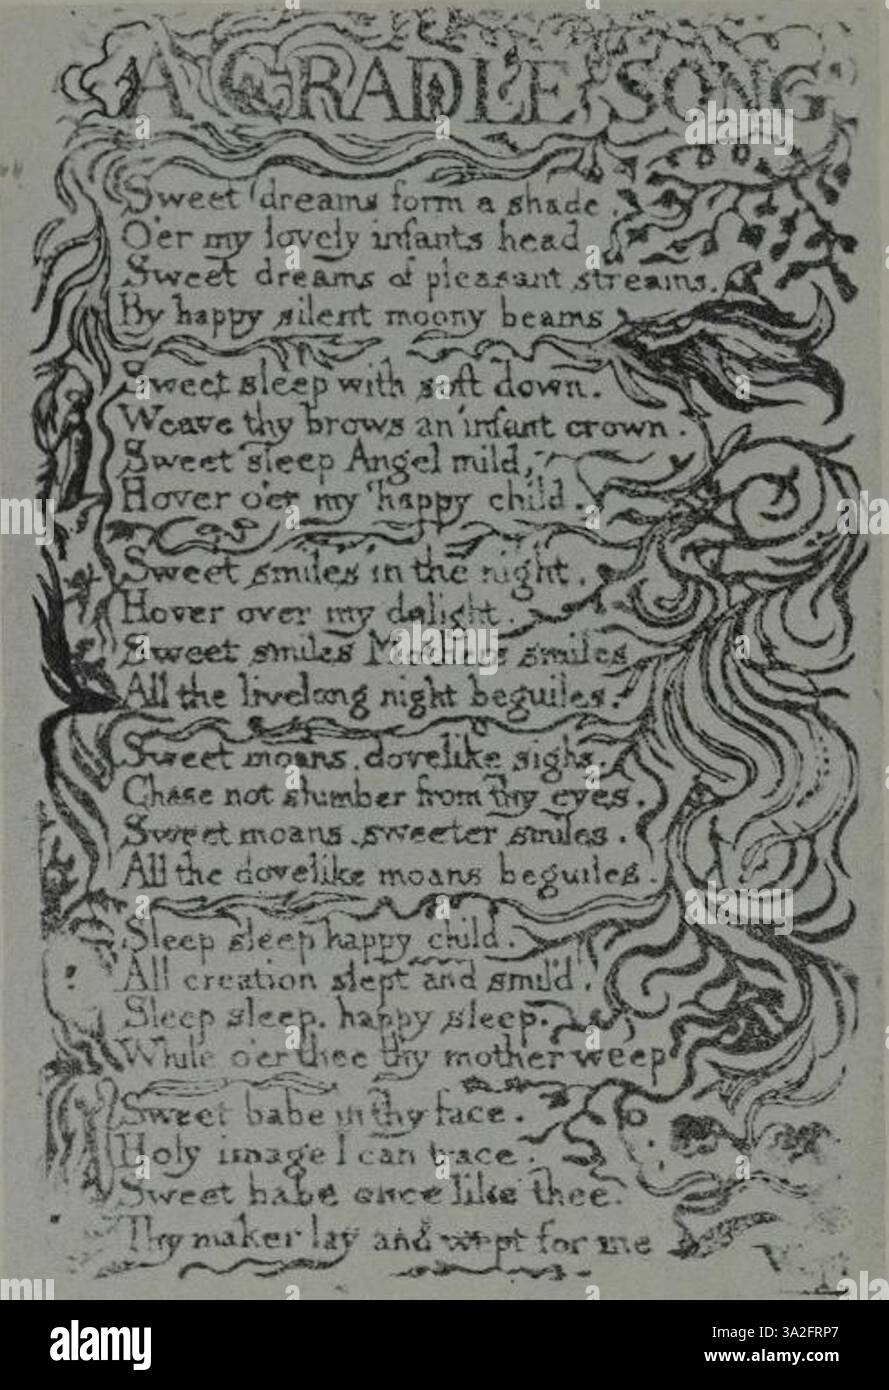 A CRADLE SONG
Sweet dreams form a shade.
O'er my lovely infants head
Sweet dreams of pleasant streams.
By happy silent moony beams
Sweet sleep with soft down.
Weave thy brows an infant crown.
Sweet sleep Angel mild,
Hover o'er my happy child.
Sweet smiles in the night.
Hover over my delight.
Sweet smiles Mothers smiles
All the livelong night beguiles.
Sweet moans, dovelike sighs.
Chase not slumber from thy eyes.
Sweet moans, sweeter smiles.
All the dovelike moans beguiles.
Sleep sleep happy child.
All creation slept and smil'd.
Sleep sleep, happy sleep.
While o'er thee thy mother weep
Sweet babe in thy face.
Holy image I can trace.
Sweet babe once like thee.
Thy maker lay and wept for me
alamy
Image ID: 3A2FRP7
www.alamy.com